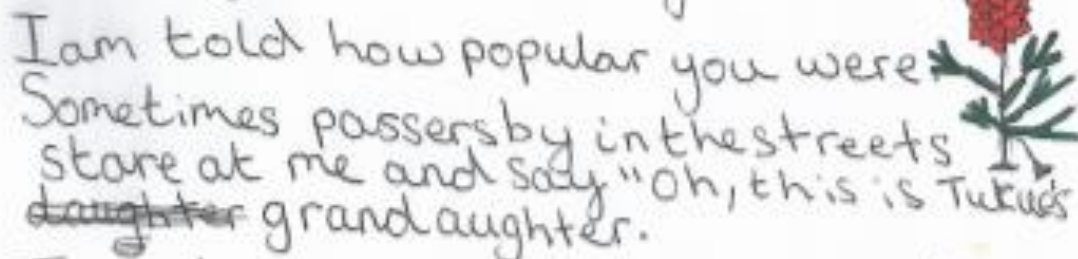 I am told how popular you were.
Sometimes passersby in the streets
stare at me and say "Oh, this is Tukue's
daughter grandaughter.